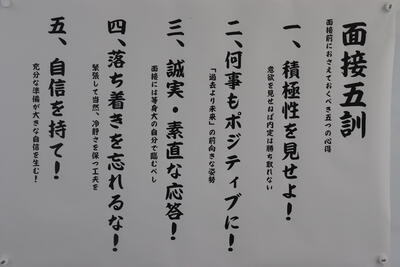 面接五訓
面接前におさえておくべき五つの心得
一、積極性を見せよ！
意欲を見せねば内定は勝ち取れない
二、何事もポジティブに！
「過去より未来」の前向きな姿勢
三、誠実・素直な応答！
面接には等身大の自分で臨むべし
四、落ち着きを忘れるな！
緊張して当然、冷静さを保つ工夫を
五、自信を持て！
充分な準備が大きな自信を生む！